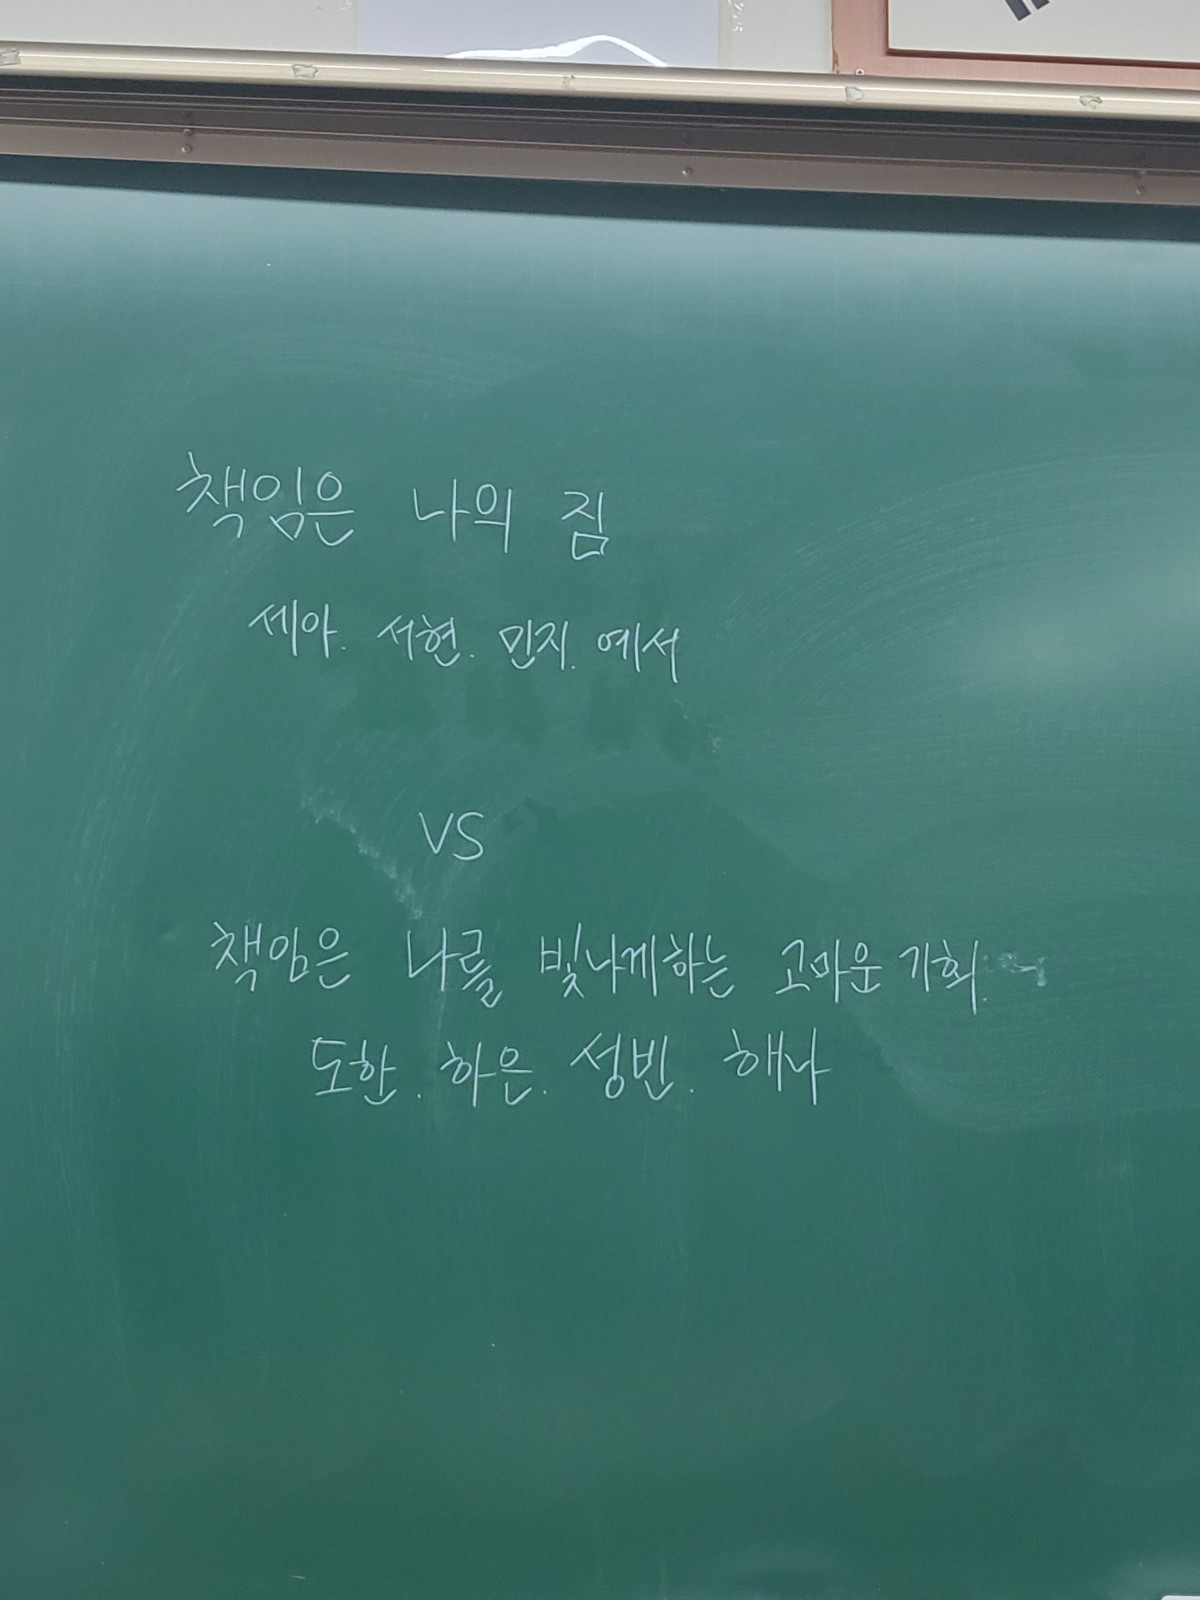 책임은 나의 짐
세아. 서현. 민지. 예서
VS
책임은 나를 빛나게하는 고마운 기회.
도한. 하은. 성빈. 해나